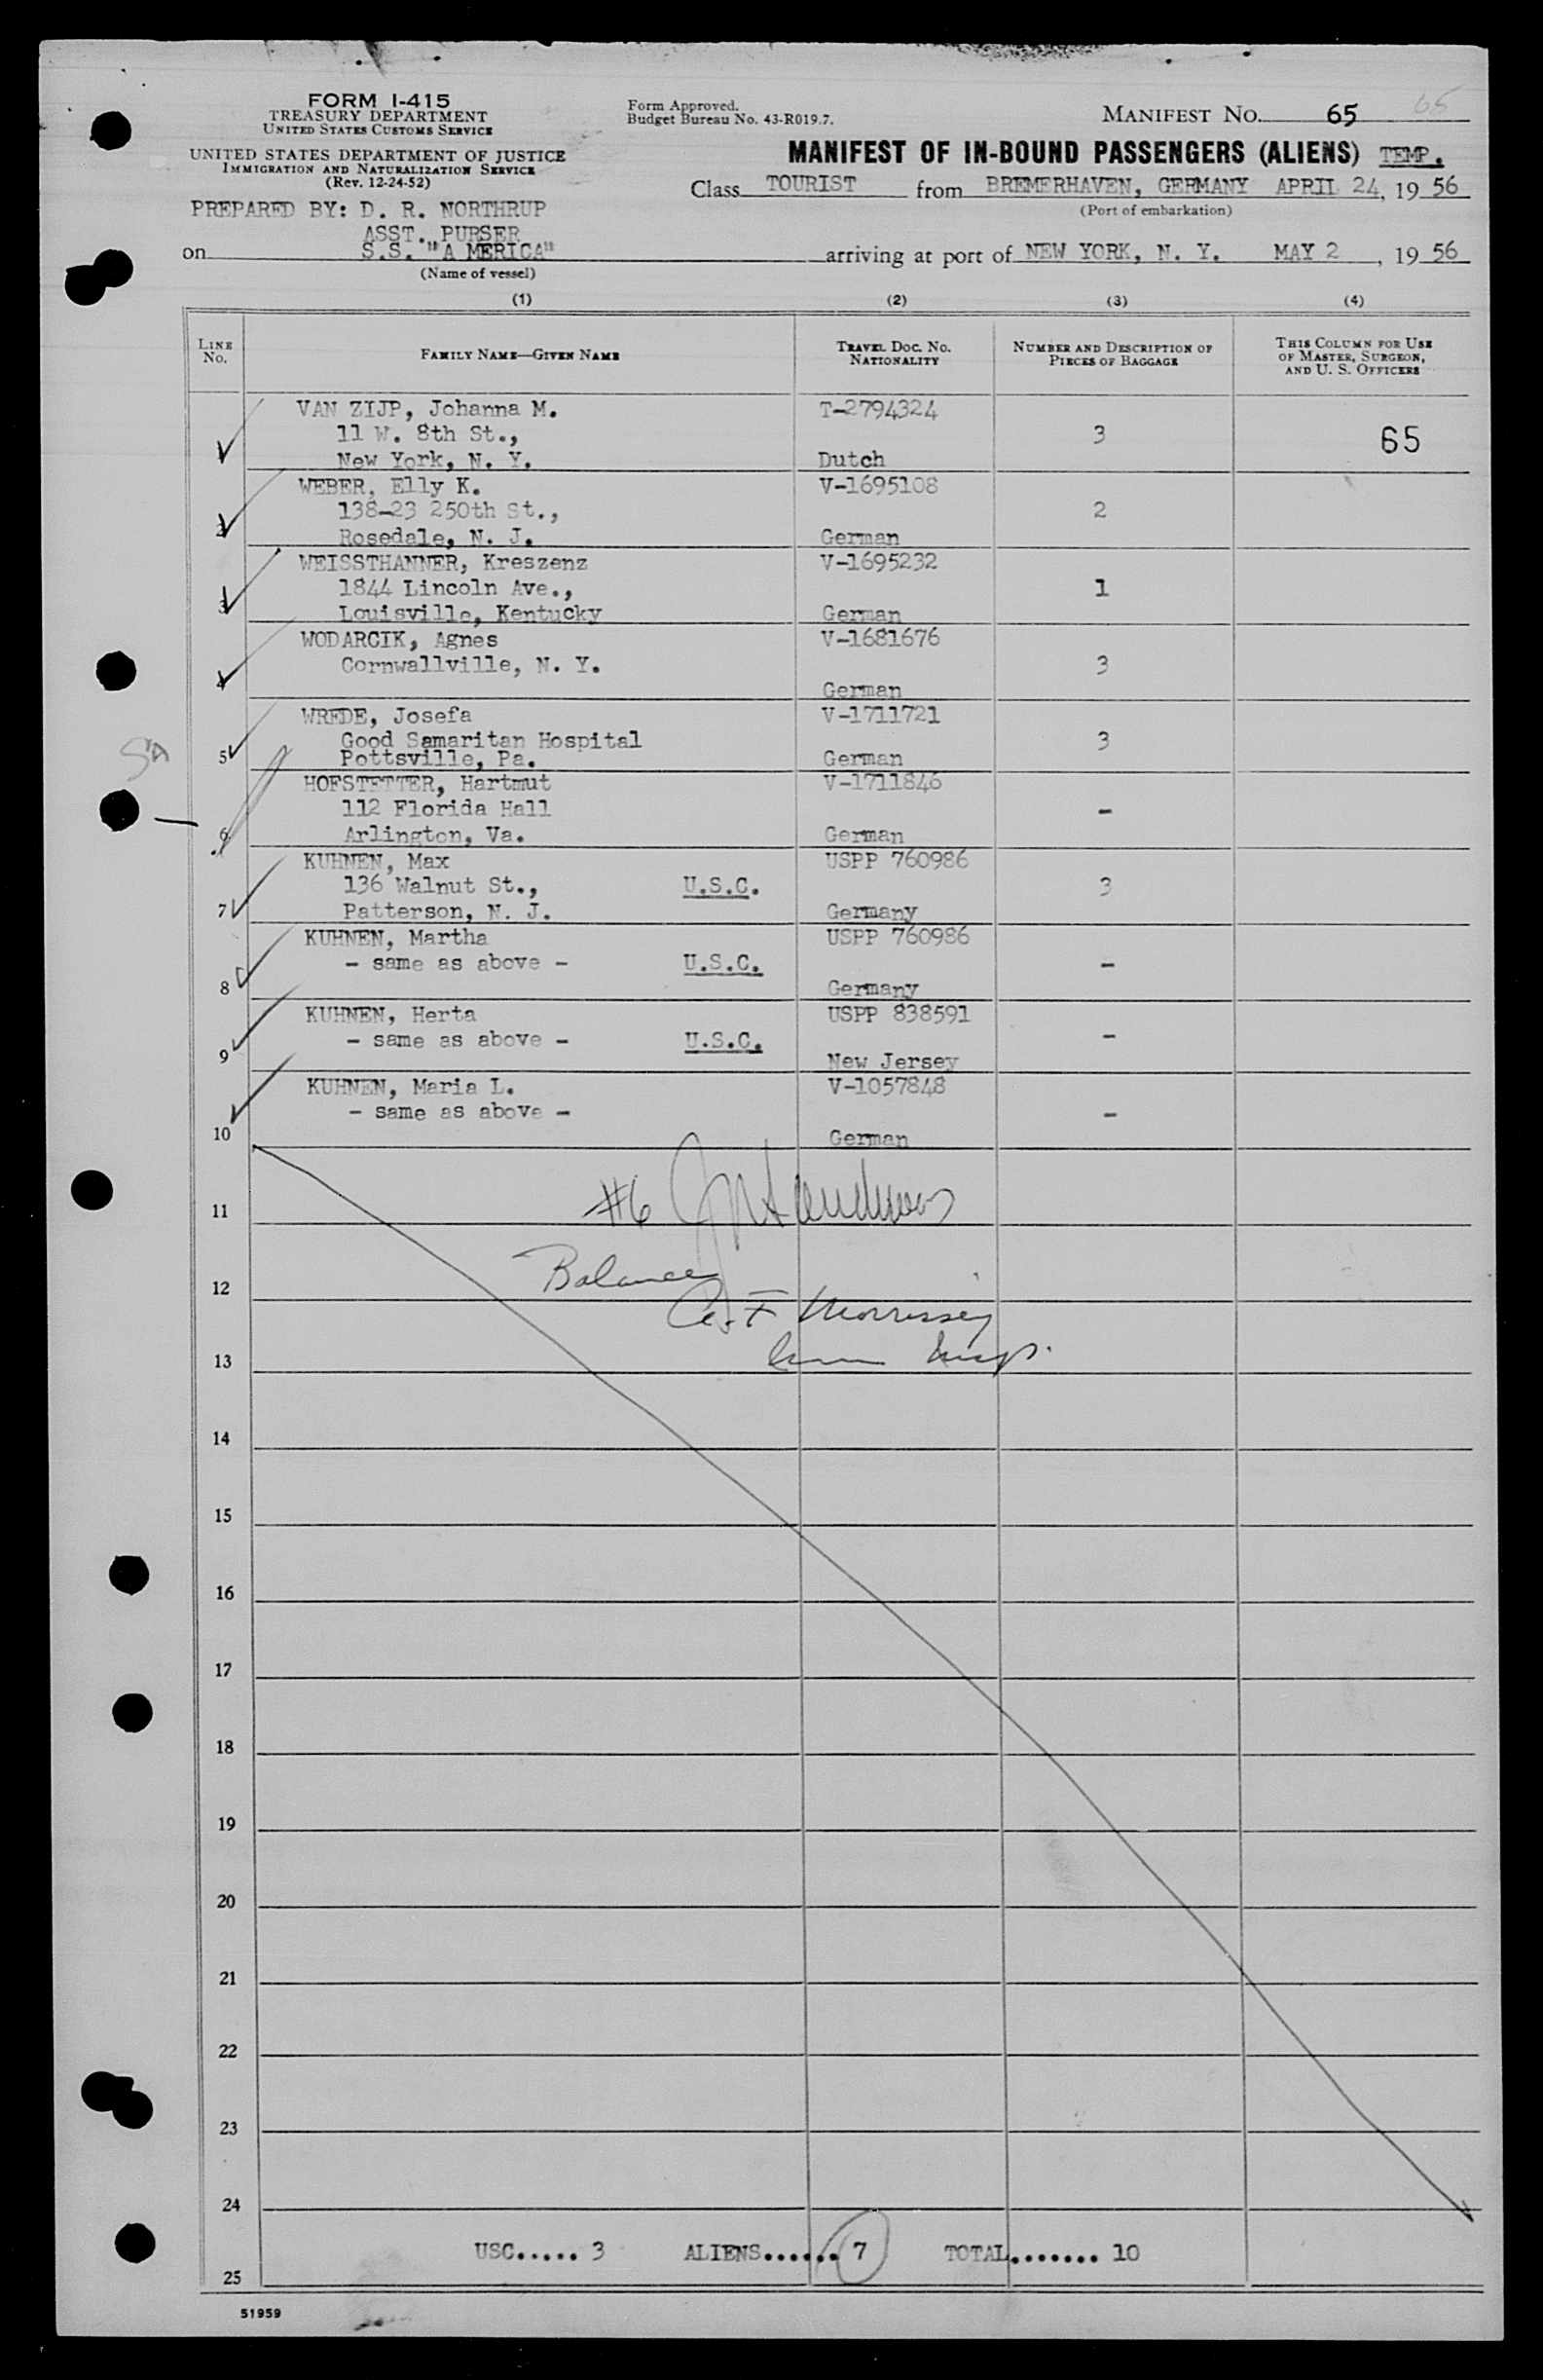 FORM I-415
TREASURY DEPARTMENT
UNITED STATES CUSTOMS SERVICE
UNITED STATES DEPARTMENT OF JUSTICE
IMMIGRATION AND NATURALIZATION SERVICE
(Rev. 12-24-52)
PREPARED BY: D. R. NORTHRUP
ASST. PURSER
on S.S. "A MERICA"
(Name of vessel)
Form Approved.
Budget Bureau No. 43-R019.7.
MANIFEST NO. 65 65
MANIFEST OF IN-BOUND PASSENGERS (ALIENS) TEMP.
Class TOURIST from BREMERHAVEN, GERMANY APRIL 24, 1956
(Port of embarkation)
arriving at port of NEW YORK, N. Y. MAY 2, 1956
(1) (2) (3) (4)
LINE No. FAMILY NAME—GIVEN NAME TRAVEL DOC. NO. NATIONALITY NUMBER AND DESCRIPTION OF PIECES OF BAGGAGE THIS COLUMN FOR USE OF MASTER, SURGEON, AND U. S. OFFICERS
VAN ZIJP, Johanna M. T-2794324
11 W. 8th St., 3 65
New York, N. Y. Dutch
WEBER, Elly K. V-1695108
2 138-23 250th St., 2
Rosedale, N. J. German
WEISSTHANNER, Kreszenz V-1695232
3 1844 Lincoln Ave., 1
Louisville, Kentucky German
WODARCIK, Agnes V-1681676
4 Cornwallville, N. Y. 3
German
WREDE, Josefa V-1711721
5 Good Samaritan Hospital 3
Pottsville, Pa. German
HOFSTETTER, Hartmut V-1711846
112 Florida Hall -
6 Arlington, Va. German
KUHNEN, Max USPP 760986
136 Walnut St., U.S.C. 3
7 Patterson, N. J. Germany
KUHNEN, Martha USPP 760986
- same as above - U.S.C. -
8 Germany
KUHNEN, Herta USPP 838591
- same as above - U.S.C. -
9 New Jersey
KUHNEN, Maria L. V-1057848
- same as above - -
10 German
11 #6
Balance
12
A. F. Morrissey
13 Imm Insp.
14
15
16
17
18
19
20
21
22
23
24
USC..... 3 ALIENS...... 7 TOTAL....... 10
25
51959